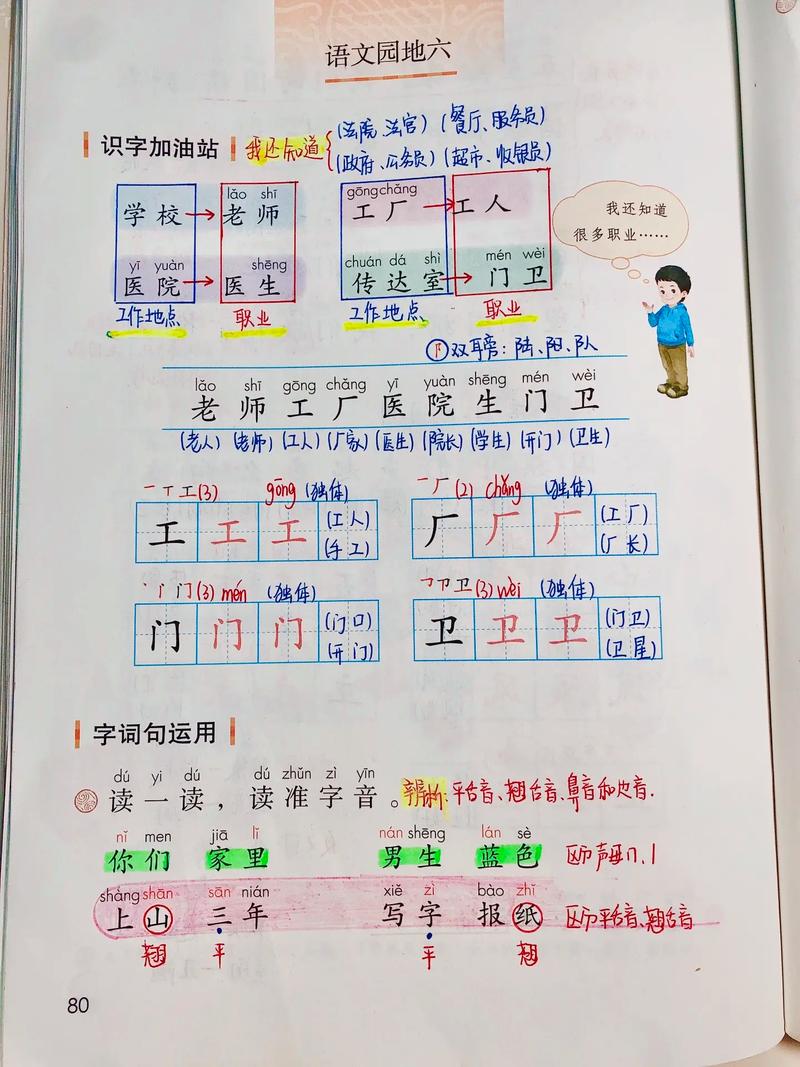 语文园地六
识字加油站
我还知道
(法院、法官) (餐厅、服务员)
(政府、公务员) (超市、收银员)
lǎo shī gōng chǎng
学校→老师 工厂→工人
yī yuàn shēng chuán dá shì mén wèi
医院→医生 传达室→门卫
工作地点 职业 工作地点 职业
我还知道
很多职业……
阝双耳旁：陆、阳、队
lǎo shī gōng chǎng yī yuàn shēng mén wèi
老师工厂医院生门卫
(老人) (老师) (工人) (厂家) (医生) (院长) (学生) (开门) (卫生)
一丅工(3) gōng (独体) 一厂(2) chǎng (独体)
工工工 (工人) 厂厂厂 (工厂)
(手工) (厂长)
丶丨门(3) mén (独体) 卫(3) wèi (独体)
门门门 (门口) 卫卫卫 (门卫)
(开门) (卫星)
字词句运用
dú yi dú dú zhǔn zì yīn
读一读，读准字音。
辨析：平舌音、翘舌音、鼻音和边音.
nǐ men jiā lǐ nán shēng lán sè
你们 家里 男生 蓝色 区分声母n、l
shàng shān sān nián xiě zì bào zhǐ
上山 三年 写字 报纸 区分平舌音、翘舌音
翘 平 平 翘
80